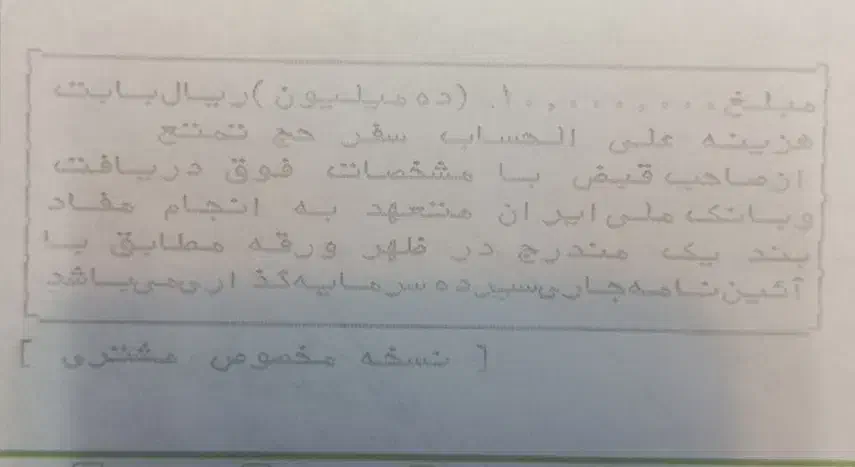 مبلغ ۱۰.۰۰۰.۰۰۰ (ده میلیون) ریال بابت
هزینه علی الحساب سفر حج تمتع
از صاحب قبض با مشخصات فوق دریافت
و بانک ملی ایران متعهد به انجام مفاد
بند یک مندرج در ظهر ورقه مطابق با
آئین نامه جاری سپرده سرمایه گذاری می باشد
[ نسخه مخصوص مشتری ]